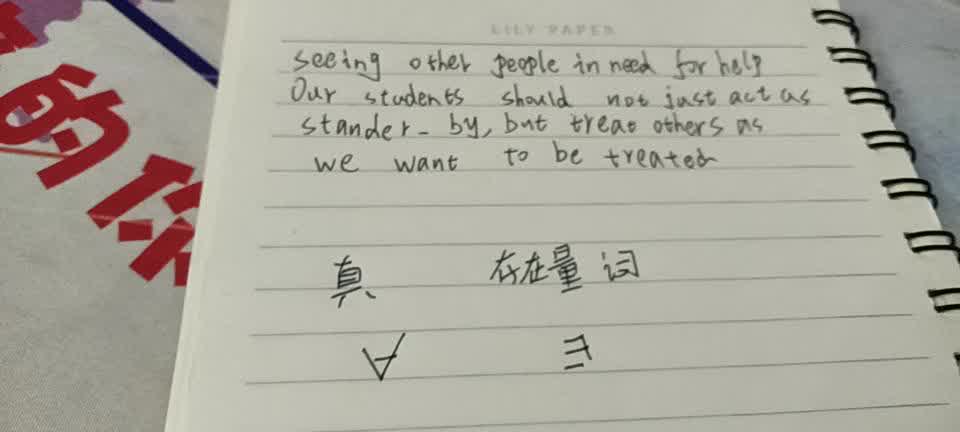 LILY PAPER
seeing other people in need for help
Our students should not just act as
stander-by, but treat others as
we want to be treated
真、 存在量词
∀ ∃
的你